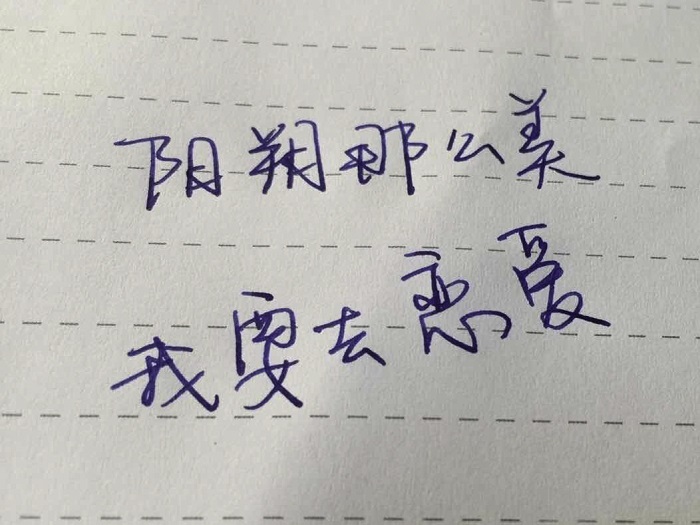 阳朔那么美
我要去恋爱